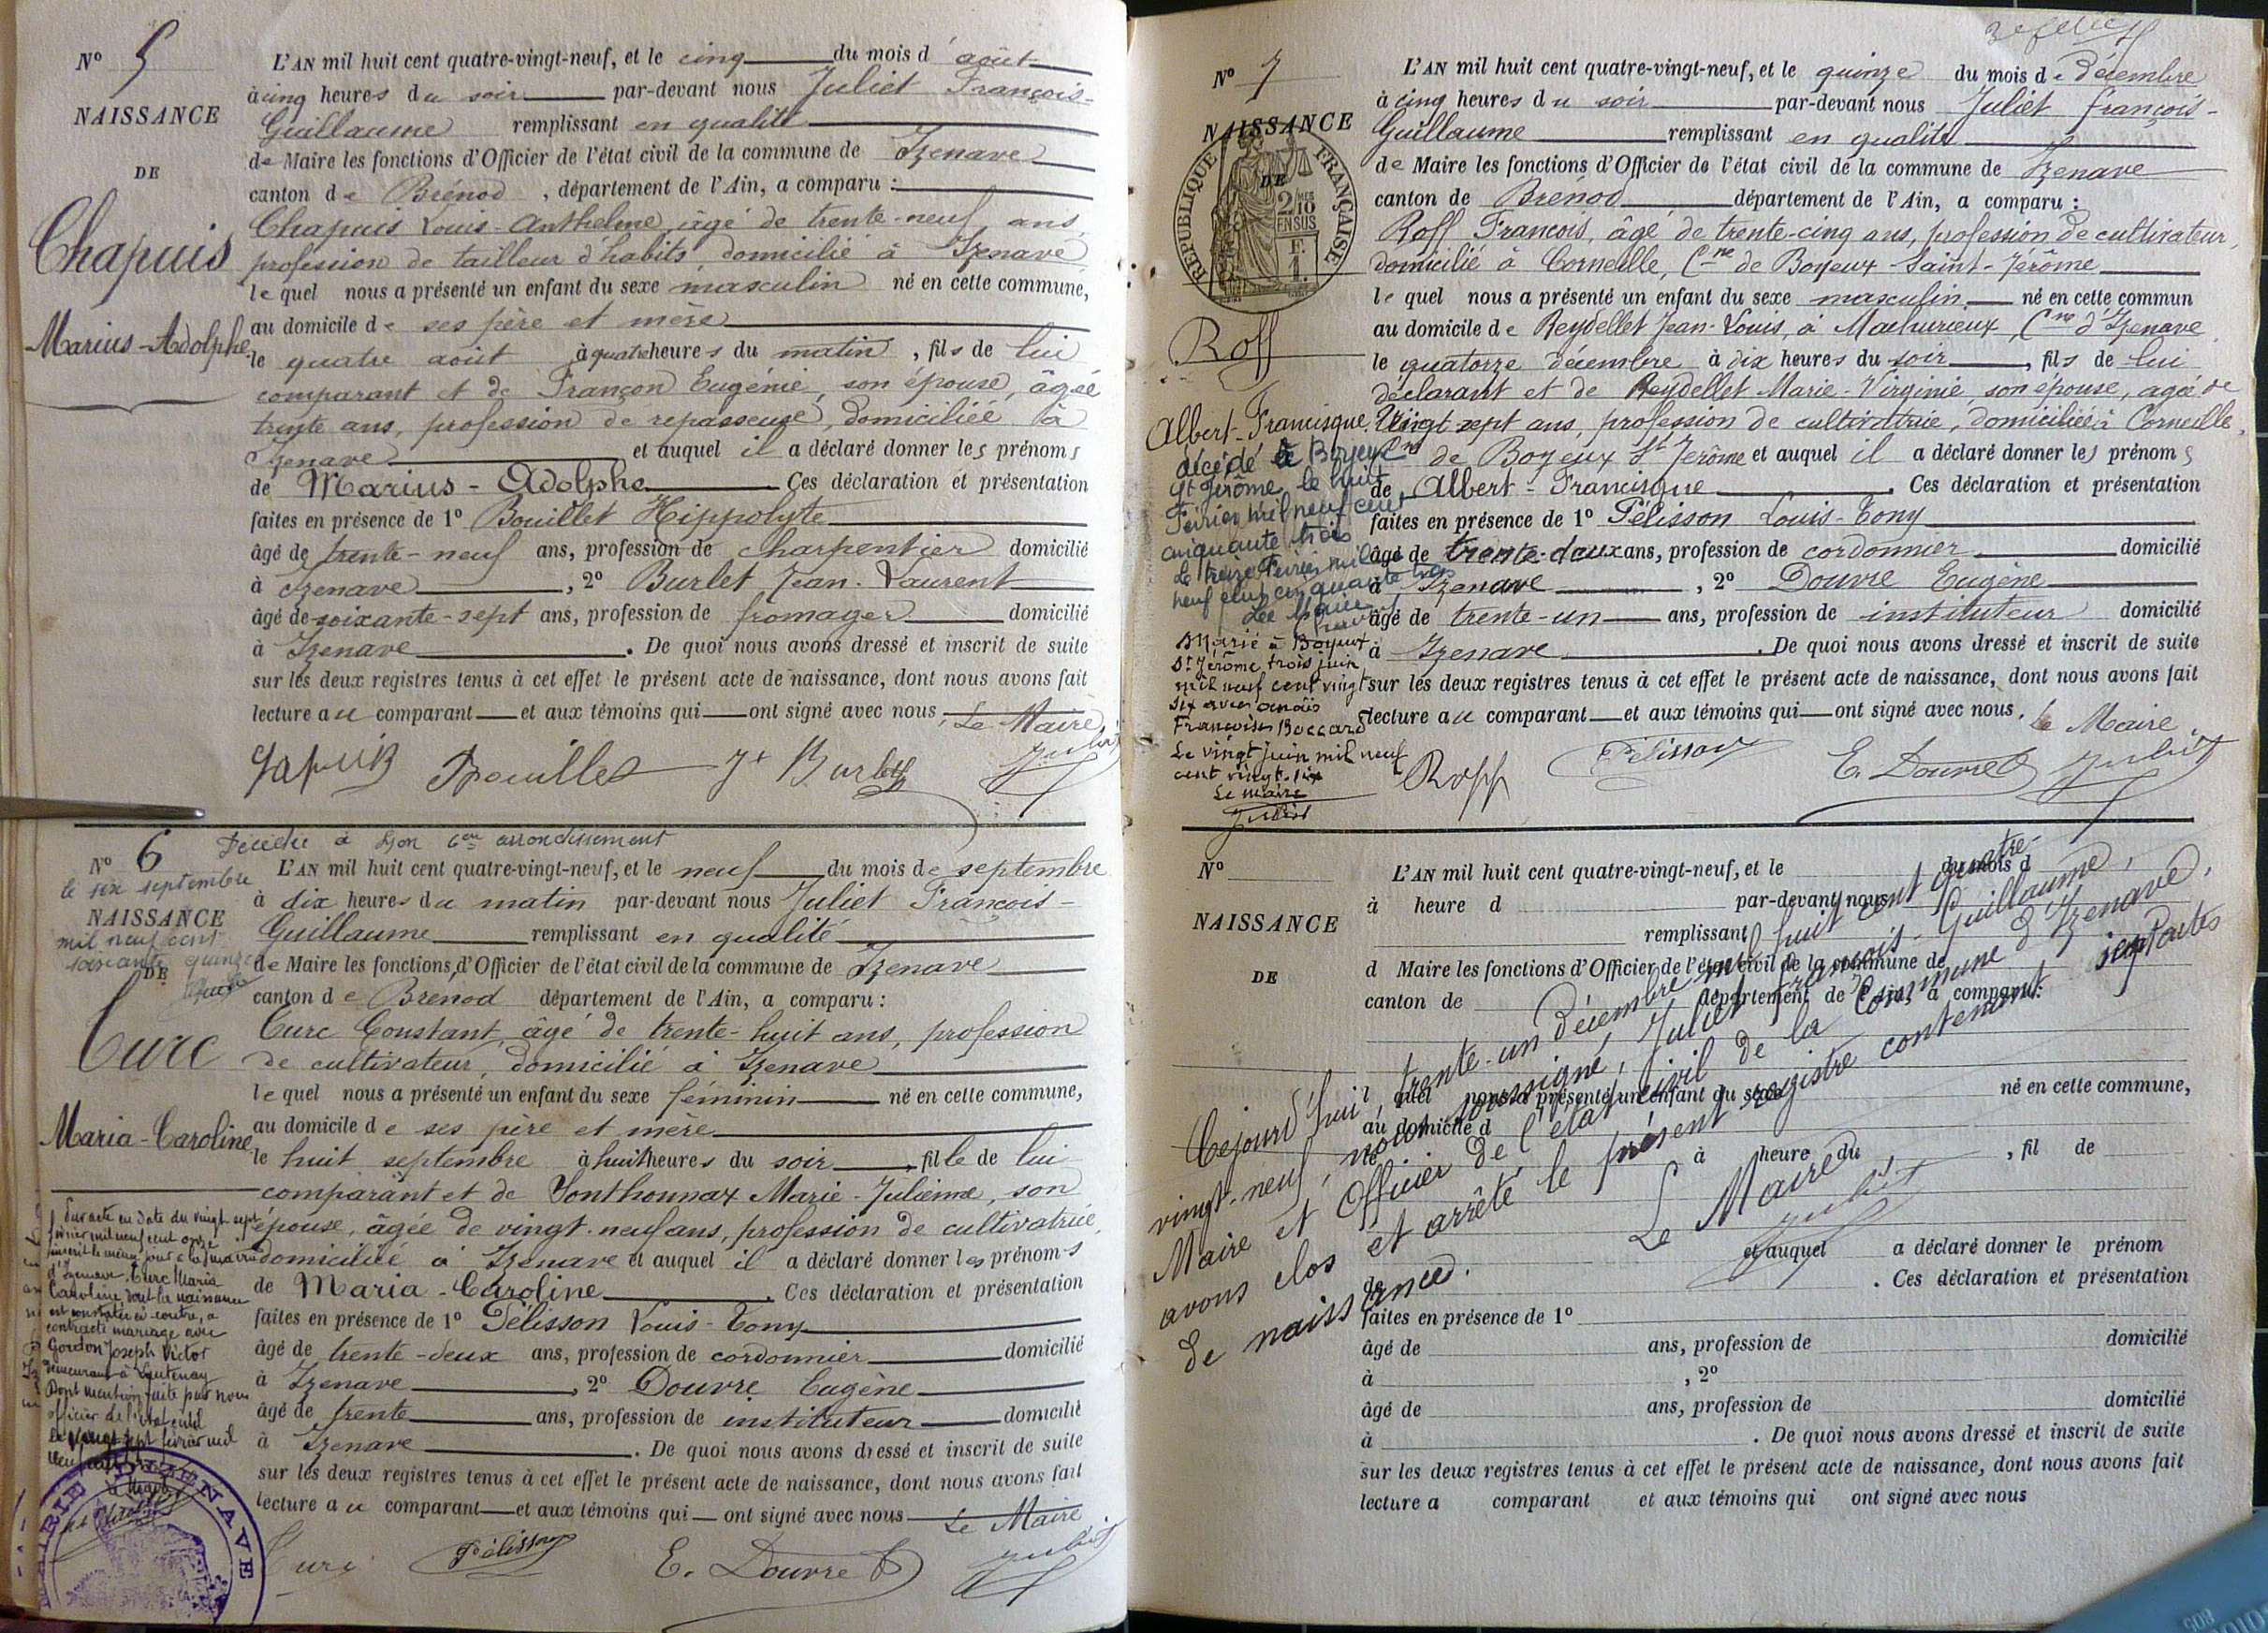 N° 5
NAISSANCE
DE
Chapuis
Marius-Adolphe
L'AN mil huit cent quatre-vingt-neuf, et le cinq du mois d'août
à cinq heures du soir par-devant nous Juliet François-
Guillaume remplissant en qualité
de Maire les fonctions d'Officier de l'état civil de la commune de Izenave
canton de Brénod, département de l'Ain, a comparu :
Chapuis Louis-Anthelme, âgé de trente-neuf ans,
profession de tailleur d'habits, domicilié à Izenave
lequel nous a présenté un enfant du sexe masculin né en cette commune,
au domicile de ses père et mère
le quatre août à quatre heures du matin, fils de lui
comparant et de Françon Eugénie, son épouse, âgée
trente ans, profession de repasseuse, domiciliée à
Izenave et auquel il a déclaré donner les prénoms
de Marius-Adolphe. Ces déclaration et présentation
faites en présence de 1° Bouillet Hippolyte
âgé de trente-neuf ans, profession de charpentier domicilié
à Izenave, 2° Burlet Jean-Laurent
âgé de soixante-sept ans, profession de fromager domicilié
à Izenave. De quoi nous avons dressé et inscrit de suite
sur les deux registres tenus à cet effet le présent acte de naissance, dont nous avons fait
lecture au comparant et aux témoins qui ont signé avec nous. Le Maire,
Bouillet Jt Burlet Juliet
N° 6
Décédée à Lyon 6em arrondissement
le six septembre
mil neuf cent
soixante quinze
NAISSANCE
DE
Curc
Maria-Caroline
L'AN mil huit cent quatre-vingt-neuf, et le neuf du mois de septembre
à dix heures du matin par-devant nous Juliet François-
Guillaume remplissant en qualité
de Maire les fonctions d'Officier de l'état civil de la commune de Izenave
canton de Brénod département de l'Ain, a comparu :
Curc Constant, âgé de trente-huit ans, profession
de cultivateur, domicilié à Izenave
lequel nous a présenté un enfant du sexe féminin né en cette commune,
au domicile de ses père et mère
le huit septembre à huit heures du soir, fille de lui
comparant et de Sonthonnax Marie-Julienne, son
épouse, âgée de vingt-neuf ans, profession de cultivatrice,
domiciliée à Izenave et auquel il a déclaré donner les prénoms
de Maria-Caroline. Ces déclaration et présentation
faites en présence de 1° Pélisson Louis-Tony
âgé de trente-deux ans, profession de cordonnier domicilié
à Izenave, 2° Douvre Eugène
âgé de trente ans, profession de instituteur domicilié
à Izenave. De quoi nous avons dressé et inscrit de suite
sur les deux registres tenus à cet effet le présent acte de naissance, dont nous avons fait
lecture au comparant et aux témoins qui ont signé avec nous Le Maire
Curc Pélisson E. Douvre Juliet
Suivant acte en date du vingt sept
février mil neuf cent onze
inscrit le même jour à la mairie
d'Izenave, Curc Maria
Caroline dont la naissance
est constatée ci-contre, a
contracté mariage avec
Goudon Joseph Victor
demeurant à Lantenay
Dont mention faite par nous
officier de l'état civil
le vingt sept février mil
neuf cent
MAIRIE D'IZENAVE
N° 7
NAISSANCE
DE
RÉPUBLIQUE FRANÇAISE
2/10 MES
EN SUS
F.
1.
Roff
Albert-Francisque
décédé à Boyeux
St Jérôme le huit
Février mil neuf cent
cinquante trois
Le treize Février mil
neuf cent cinquante trois
Le Maire
Marié à Boyeux
St Jérôme trois juin
mil neuf cent vingt
six avec Anaïs
Françoise Boccard
Le vingt juin mil neuf
cent vingt-six
Le maire
Juliet
L'AN mil huit cent quatre-vingt-neuf, et le quinze du mois de décembre
à cinq heures du soir par-devant nous Juliet François-
Guillaume remplissant en qualité
de Maire les fonctions d'Officier de l'état civil de la commune de Izenave
canton de Brénod département de l'Ain, a comparu :
Roff François, âgé de trente-cinq ans, profession de cultivateur,
domicilié à Corneille, Cne de Boyeux Saint-Jérôme
lequel nous a présenté un enfant du sexe masculin né en cette commun
au domicile de Reydellet Jean-Louis, à Machurieux, Cne d'Izenave
le quatorze décembre à dix heures du soir, fils de lui
déclarant et de Reydellet Marie-Virginie, son épouse, agée de
vingt sept ans, profession de cultivatrice, domiciliée à Corneille,
Cne de Boyeux St Jérôme et auquel il a déclaré donner les prénoms
de Albert-Francisque. Ces déclaration et présentation
faites en présence de 1° Pélisson Louis-Tony
âgé de trente-deux ans, profession de cordonnier domicilié
à Izenave, 2° Douvre Eugène
âgé de trente-un ans, profession de instituteur domicilié
à Izenave. De quoi nous avons dressé et inscrit de suite
sur les deux registres tenus à cet effet le présent acte de naissance, dont nous avons fait
lecture au comparant et aux témoins qui ont signé avec nous. Le Maire
Roff Pélisson E. Douvre Juliet
N°
NAISSANCE
DE
L'AN mil huit cent quatre-vingt-neuf, et le du mois d
à heure d par-devant nous
remplissant
d Maire les fonctions d'Officier de l'état civil de la commune de
canton de département de l'Ain, a comparu :
l quel nous a présenté un enfant du sexe né en cette commune,
au domicile d
le à heure du , fil de
et auquel a déclaré donner le prénom
de . Ces déclaration et présentation
faites en présence de 1°
âgé de ans, profession de domicilié
à , 2°
âgé de ans, profession de domicilié
à . De quoi nous avons dressé et inscrit de suite
sur les deux registres tenus à cet effet le présent acte de naissance, dont nous avons fait
lecture a comparant et aux témoins qui ont signé avec nous
Cejourd'hui, trente-un décembre mil huit cent quatre-
vingt-neuf, nous soussigné, Juliet François-Guillaume,
Maire et Officier de l'état civil de la commune d'Izenave,
avons clos et arrêté le présent registre contenant sept actes
de naissances.
Le Maire,
Juliet